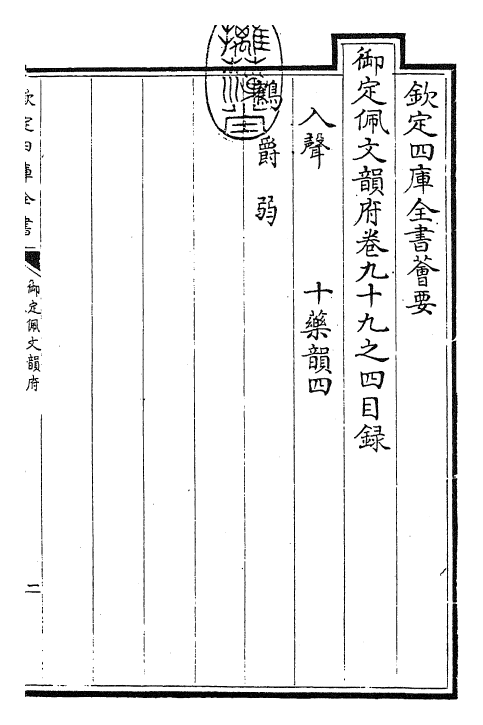 欽定四庫全書薈要
御定佩文韻府卷九十九之四目録
入聲　十藥韻四
鶴　爵　弱
欽定四庫全書
御定佩文韻府
二